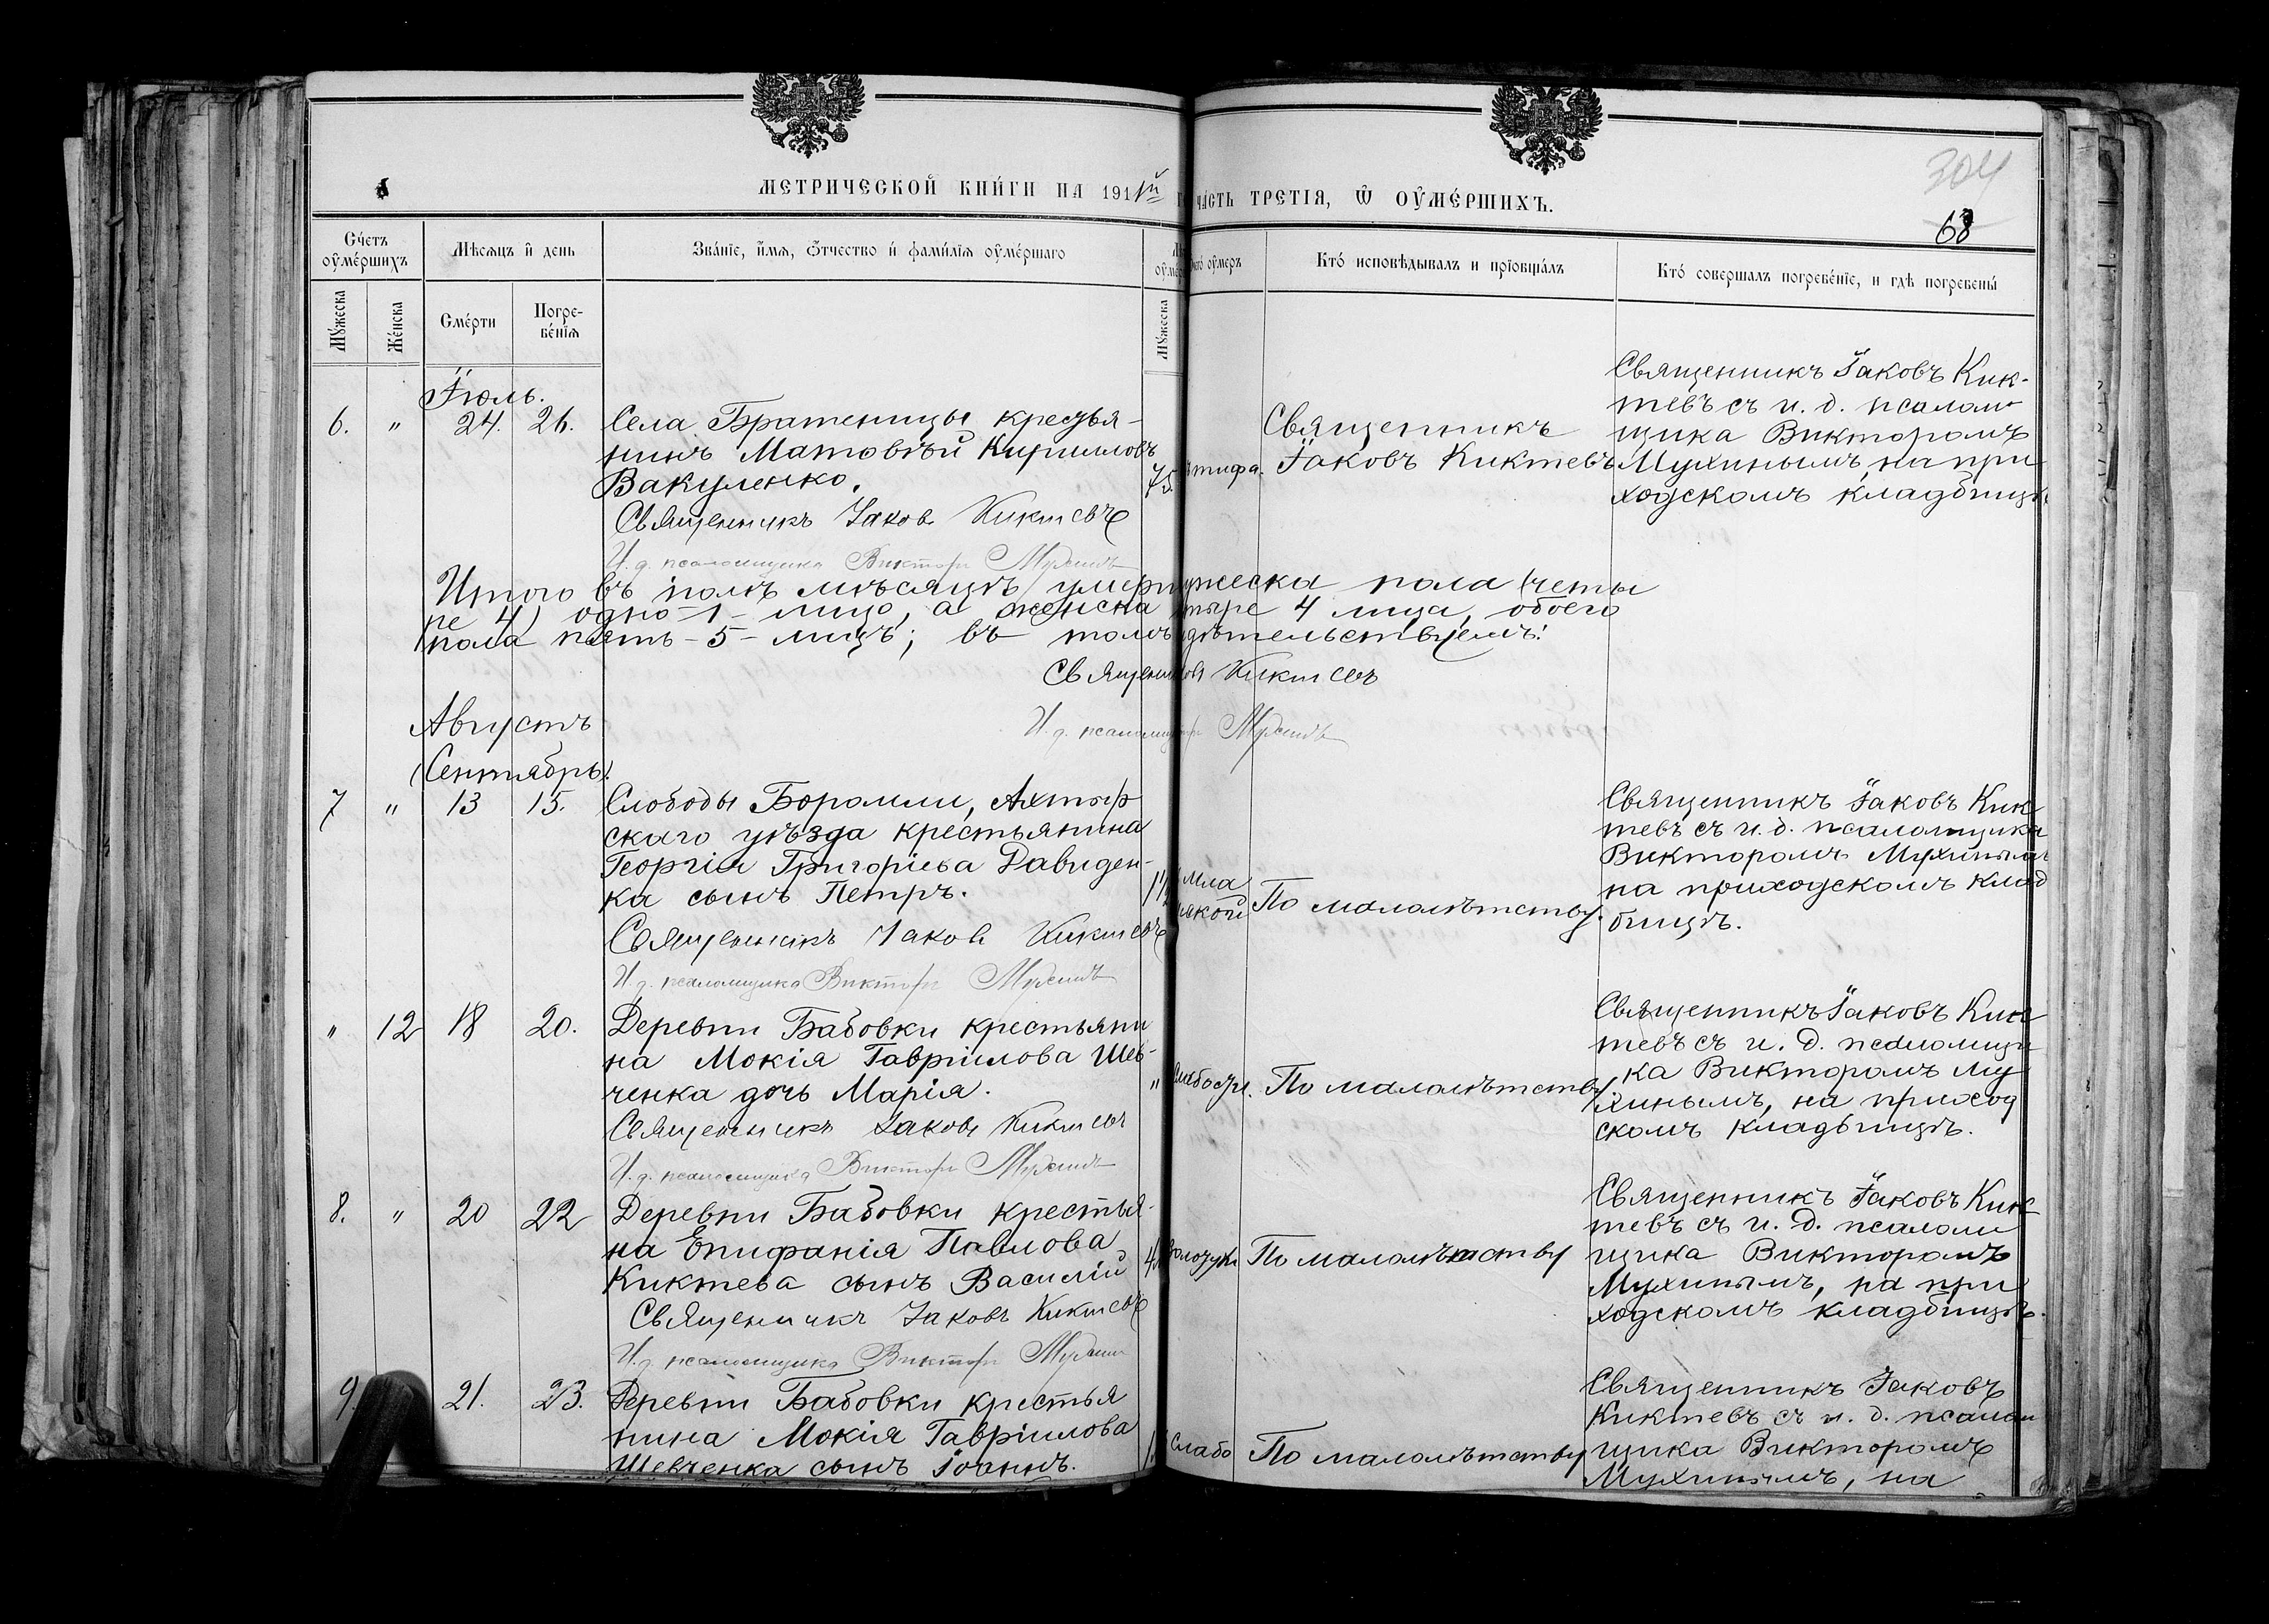 МЕТРИЧЕСКОЙ КНИ́ГИ НА 1911й
ЧА́СТЬ ТРЕТІЯ, Ѿ ОУ҆МЕ́РШИХЪ.
304
68
Сче́тъ оу҆ме́ршихъ
Мѣсяцъ и҆ день
Зва́нїе, и҆́мѧ, ѻ҆́тчество и҆ фами́лїѧ оу҆ме́ршагѡ
оу҆меръ
Кто́ исповѣ́дывалъ и прїѡбща́лъ
Кто́ совершалъ погребе́нїе, и гдѣ погребены́
Му́жеска
Же́нска
Сме́рти
Погре-
бе́нїѧ
Му́жеска
Іюль.
6. " 24. 26.
Села Братеницы крестья-
нинъ Матовѣй Кирилловъ
Вакуленко.
Священникъ Іаков Киктевъ
И. д. псаломщика Викторъ Мухинъ
75
тифа.
Священникъ
Іаковъ Киктевъ
Священникъ Іаковъ Кик-
тевъ съ и. д. псалом
щика Викторомъ
Мухинымъ, на при
ходскомъ кладбищѣ
Итого въ іюлѣ мѣсяцѣ умер мужеска пола (четы
ре 4) одно -1- лицо, а женска тыре 4 лица, обоего
пола пять -5- лицъ; въ томъ дѣтельствуемъ:
Священ Киктевъ
И. д. псаломщ Мухинъ
Августъ
(Сентябрь).
7 " 13 15.
Слободы Боромли, Ахтыр
скаго уѣзда крестьянина
Георгія Григоріева Давиден-
ка сынъ Петръ.
Священникъ Іаков Киктевъ
И. д. псаломщика Викторъ Мухинъ
1½
По малолѣтству.
Священникъ Іаковъ Кик
тевъ съ и. д. псаломщика
Викторомъ Мухинымъ
на приходскомъ клад
бищѣ.
" 12 18 20.
Деревни Бабовки крестьяни
на Мокія Гавріилова Шев-
ченка дочь Марія.
Священникъ Іаковъ Киктевъ
И. д. псаломщика Викторъ Мухинъ
"
По малолѣтству
Священникъ Іаковъ Кик
тевъ съ и. д. псаломщи
ка Викторомъ Му
хинымъ, на приход
скомъ кладбищѣ.
8. " 20 22
Деревни Бабовки крестья-
на Епифанія Павлова
Киктева сынъ Василій
Священникъ Іаковъ Киктевъ
И. д. псаломщика Викторъ Мухинъ
По малолѣтству
Священникъ Іаковъ Кик
тевъ съ и. д. псалом
щика Викторомъ
Мухинымъ, на при
ходскомъ кладбищѣ.
9. 21. 23.
Деревни Бабовки крестья
нина Мокія Гавріилова
Шевченка сынъ Іоаннъ.
Слабо
По малолѣтству
Священникъ Іаковъ
Киктевъ съ и. д. псалом
щика Викторомъ
Мухинымъ, на